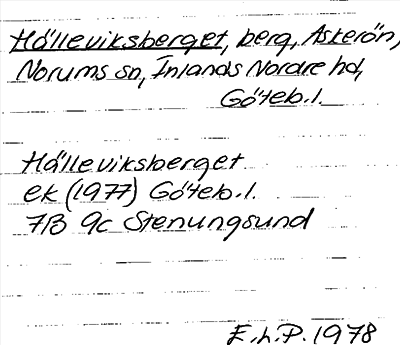 Hälleviksberget, berg, Askerön,
Norums sn, Inlands Nordre hd,
Göteb. l.
Hälleviksberget
ek (1977) Göteb. l.
7B 9c Stenungsund
E.h.P. 1978